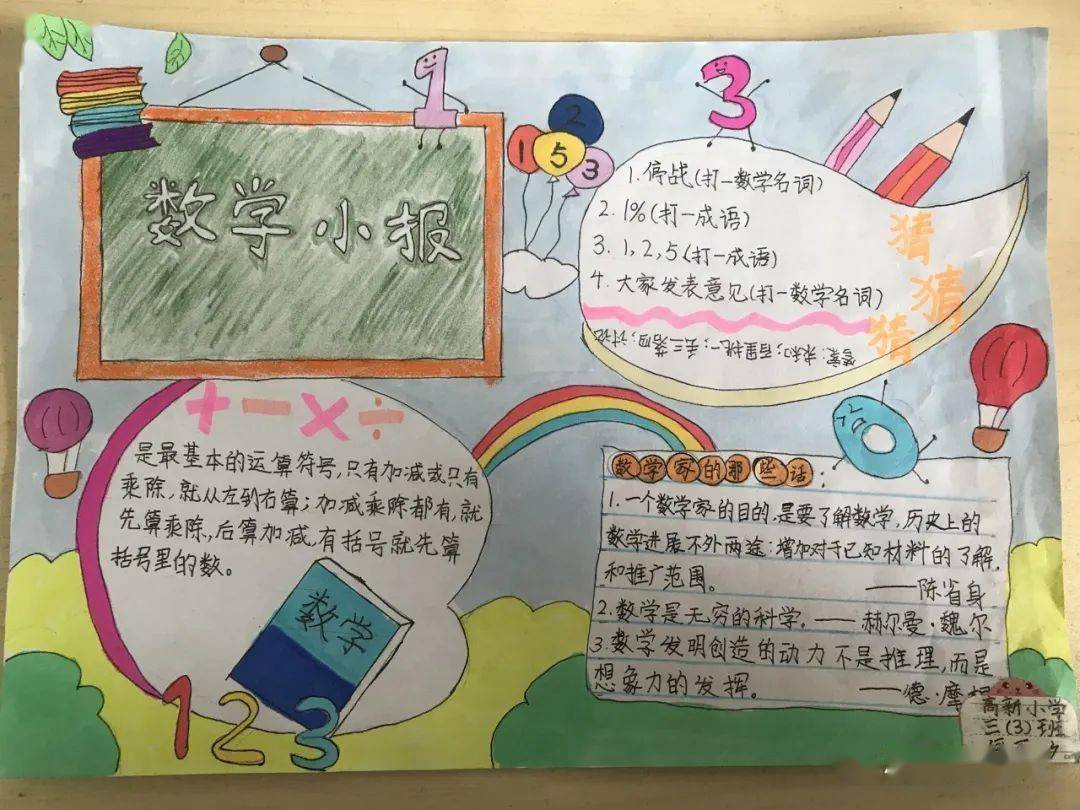 数学小报
1
3
2
1 5 3
1.停战(打一数学名词)
2.1%(打一成语)
3.1,2,5(打一成语)
4.大家发表意见(打一数学名词)
猜
猜
猜
答案:求和;百里挑一;丢三落四;商讨
+-×÷
是最基本的运算符号,只有加减或只有
乘除,就从左到右算;加减乘除都有,就
先算乘除,后算加减,有括号就先算
括号里的数。
数学
1 2 3
数学家的那些话:
1.一个数学家的目的,是要了解数学,历史上的
数学进展不外两途:增加对于已知材料的了解,
和推广范围。
——陈省身
2.数学是无穷的科学。——赫尔曼·魏尔
3.数学发明创造的动力不是推理,而是
想象力的发挥。 ——德·摩
高新小学
三(3)班